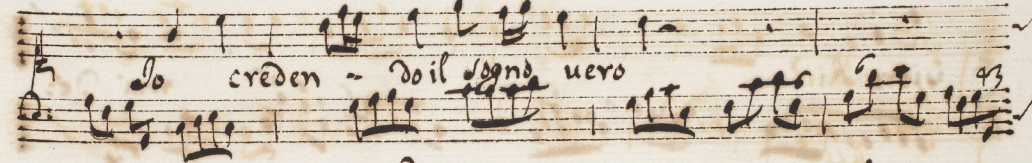 Io creden - do il sogno uero
6 6 43